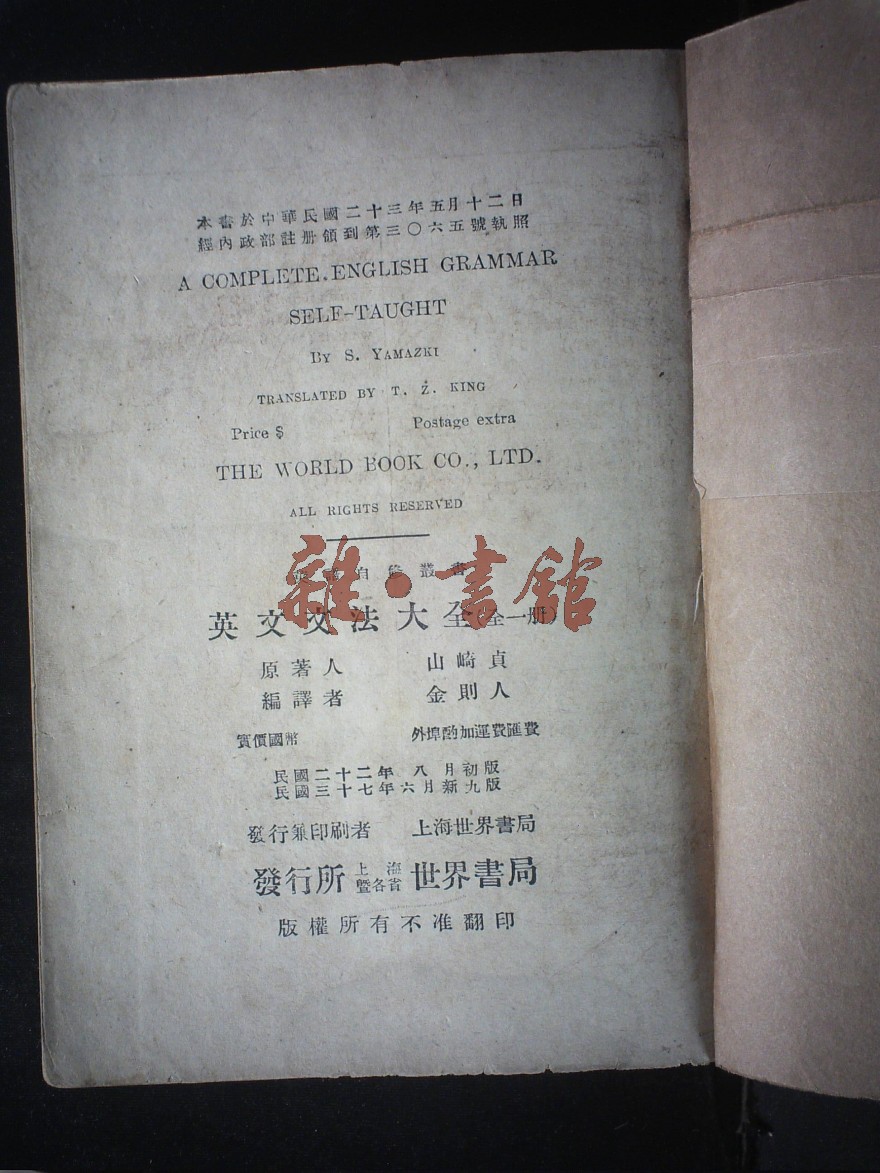 本書於中華民國二十三年五月十二日
經內政部註册領到第三〇六五號執照
A COMPLETE.ENGLISH GRAMMAR
SELF-TAUGHT
BY S. YAMAZKI
TRANSLATED BY T. Z. KING
Price $ Postage extra
THE WORLD BOOK CO., LTD.
ALL RIGHTS RESERVED
自修叢書
雜·書館
英文文法大全(全一册)
原著人 山崎貞
編譯者 金則人
實價國幣 外埠酌加運費匯費
民國二十二年 八月初版
民國三十七年六月新九版
發行兼印刷者 上海世界書局
發行所 上海暨各省 世界書局
版權所有不准翻印